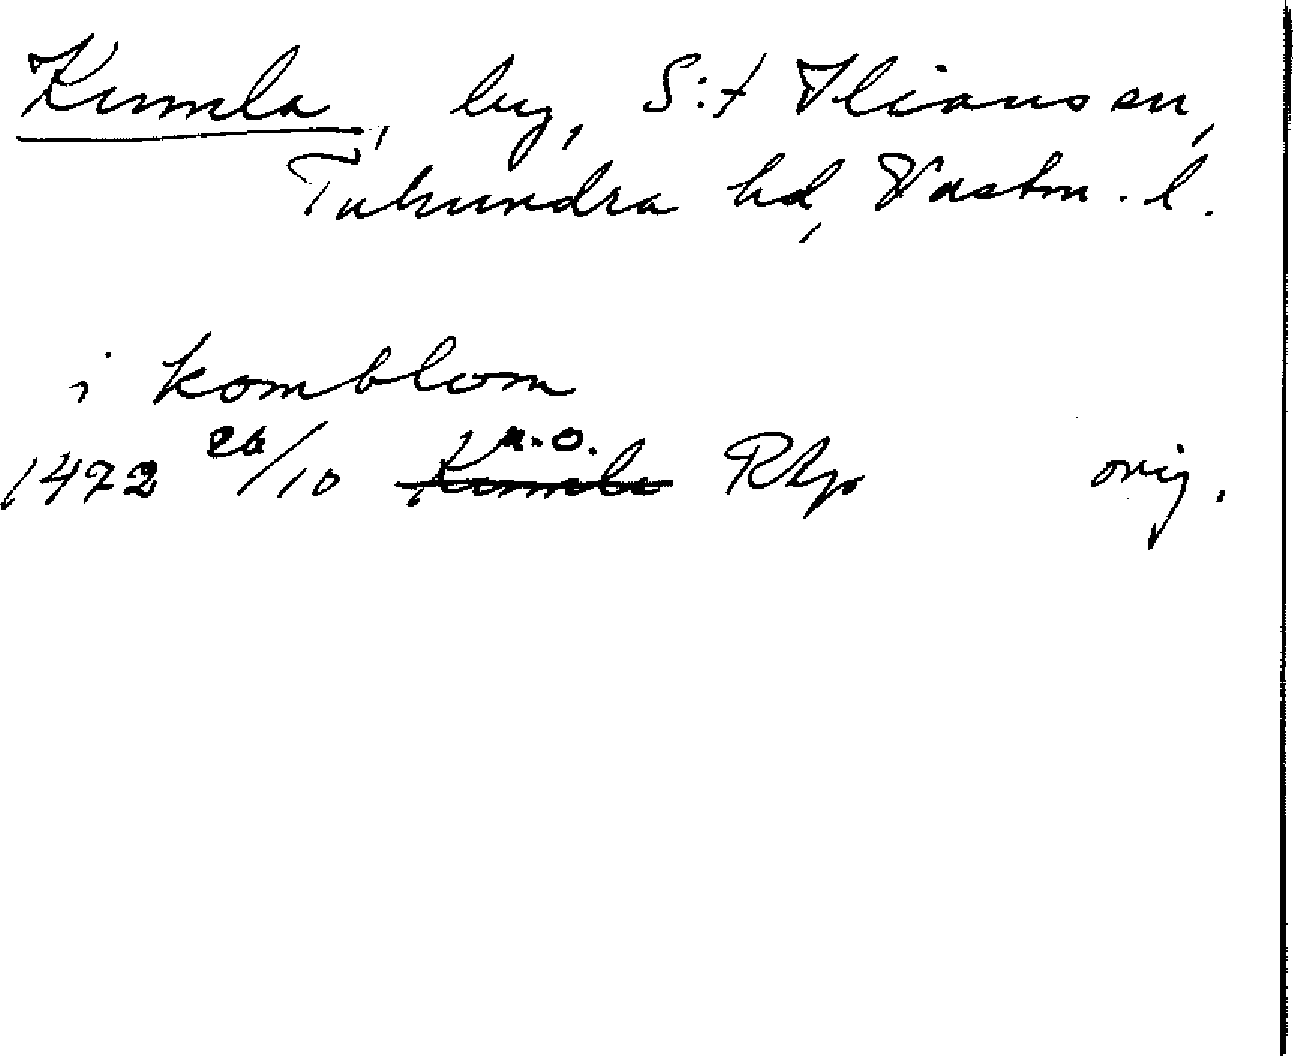 Kumla, by, S:t Ilians sn,
Tuhundra hd, Västm. l.
i komblom
1472 26/10 Kumla u.o. RAp orig.